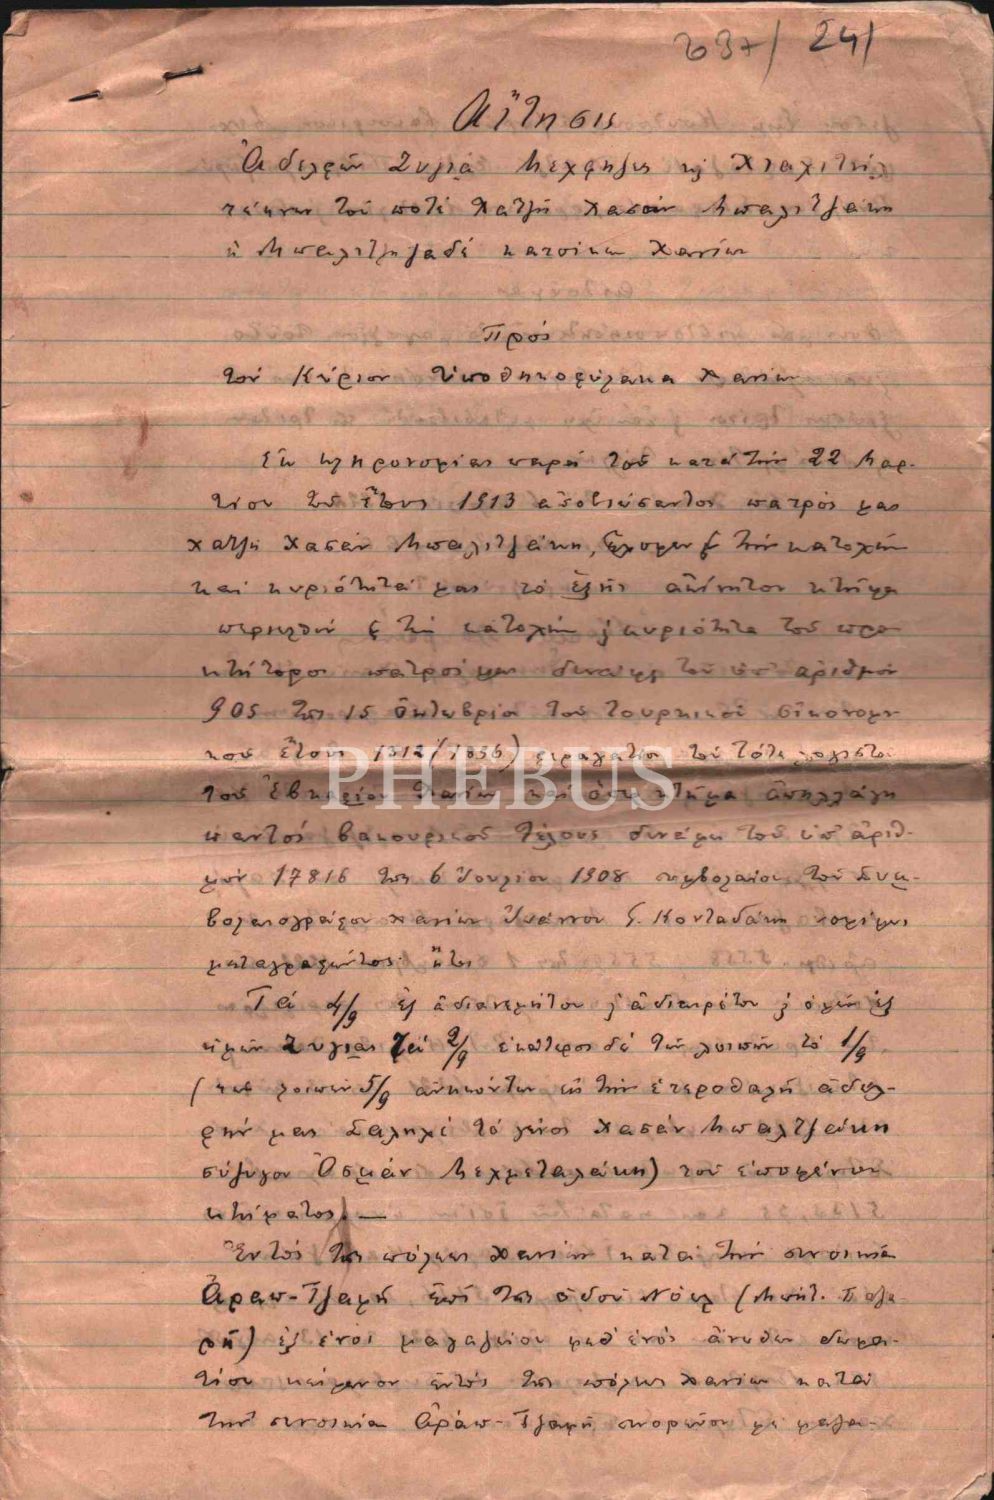 637/ 24/
Αἴτησις
Ἀδελφῶν Ζυγιὰ Μεχφηζὲ καὶ
τέκνων τοῦ ποτὲ Χατζῆ Χασὰν Μπαλιτζάκη
ἢ Μπαλιτζηζαδὲ κατοίκων Χανίων
Πρὸς
τὸν Κύριον Ὑποθηκοφύλακα Χανίων
Ἐκ κληρονομίας παρὰ τοῦ κατὰ τὴν 22 Μαρ-
τίου τοῦ ἔτους 1913 ἀποβιώσαντος πατρός μας
Χατζῆ Χασὰν Μπαλιτζάκη, ἔχομεν ὑπὸ τὴν κατοχὴν
καὶ κυριότητά μας τὸ ἑξῆς ἀκίνητον κτῆμα
περιελθὸν εἰς τὴν κατοχὴν καὶ κυριότητα τοῦ προ
κτήτορος πατρός μας δυνάμει τοῦ ὑπ' ἀριθμὸν
905 τῆς 15 Ὀκτωβρίου τοῦ τουρκικοῦ οἰκονομι
κοῦ ἔτους 1312 (1896) τοῦ τότε
τοῦ Ἐβκαφίου Χανίων καὶ κτῆμα ἀπηλλάγη
παντὸς βακουφικοῦ τέλους δυνάμει τοῦ ὑπ' ἀριθ-
μὸν 17816 τῆς 6 Ἰουλίου 1908 συμβολαίου τοῦ Συμ-
βολαιογράφου Χανίων Ἰωάννου Γ. Κονταδάκη νομίμως
μεταγραφέντος ἤτοι
Τὰ 4/9 ἐξ ἀδιανεμήτου καὶ ἀδιαιρέτου καὶ ἐξ
ἡμῶν Ζυγιὰς τὰ 2/9 ἑκάτερος δὲ τῶν λοιπῶν τὸ 1/9
(τῶν λοιπῶν 5/9 ἀνηκόντων εἰς τὴν ἑτεροθαλῆ ἀδελ-
φήν μας Σαλιχὲ τὸ γένος Χασὰν Μπαλτζάκη
σύζυγον Ὀσμὰν Μεχμεταλάκη) τοῦ ἑπομένου
κτήματος.—
Ἐντὸς τῆς πόλεως Χανίων κατὰ τὴν συνοικίαν
Ἀραπ-Τζαμὴ ἐπὶ τῆς ὁδοῦ Νόελ (Μπὴτ. Παζα-
ρὴ) ἐξ ἑνὸς μαγαζείου μεθ' ἑνὸς ἄνωθεν δωμα-
τίου κείμενον ἐντὸς τῆς πόλεως Χανίων κατὰ
τὴν συνοικία Ἀράπ-Τζαμὴ συνορεῦον μὲ μαγα-
PHEBUS